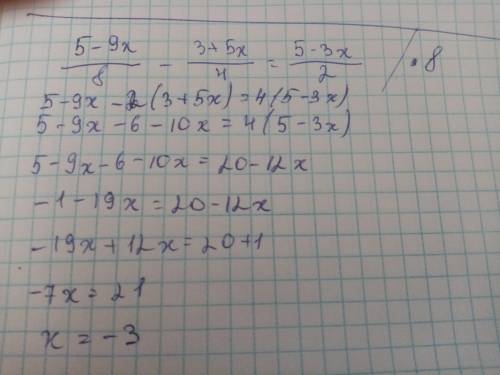 (5-9x)/8 - (3+5x)/4 = (5-3x)/2 / ·8
5-9x-2(3+5x)=4(5-3x)
5-9x-6-10x=4(5-3x)
5-9x-6-10x=20-12x
-1-19x=20-12x
-19x+12x=20+1
-7x=21
x=-3